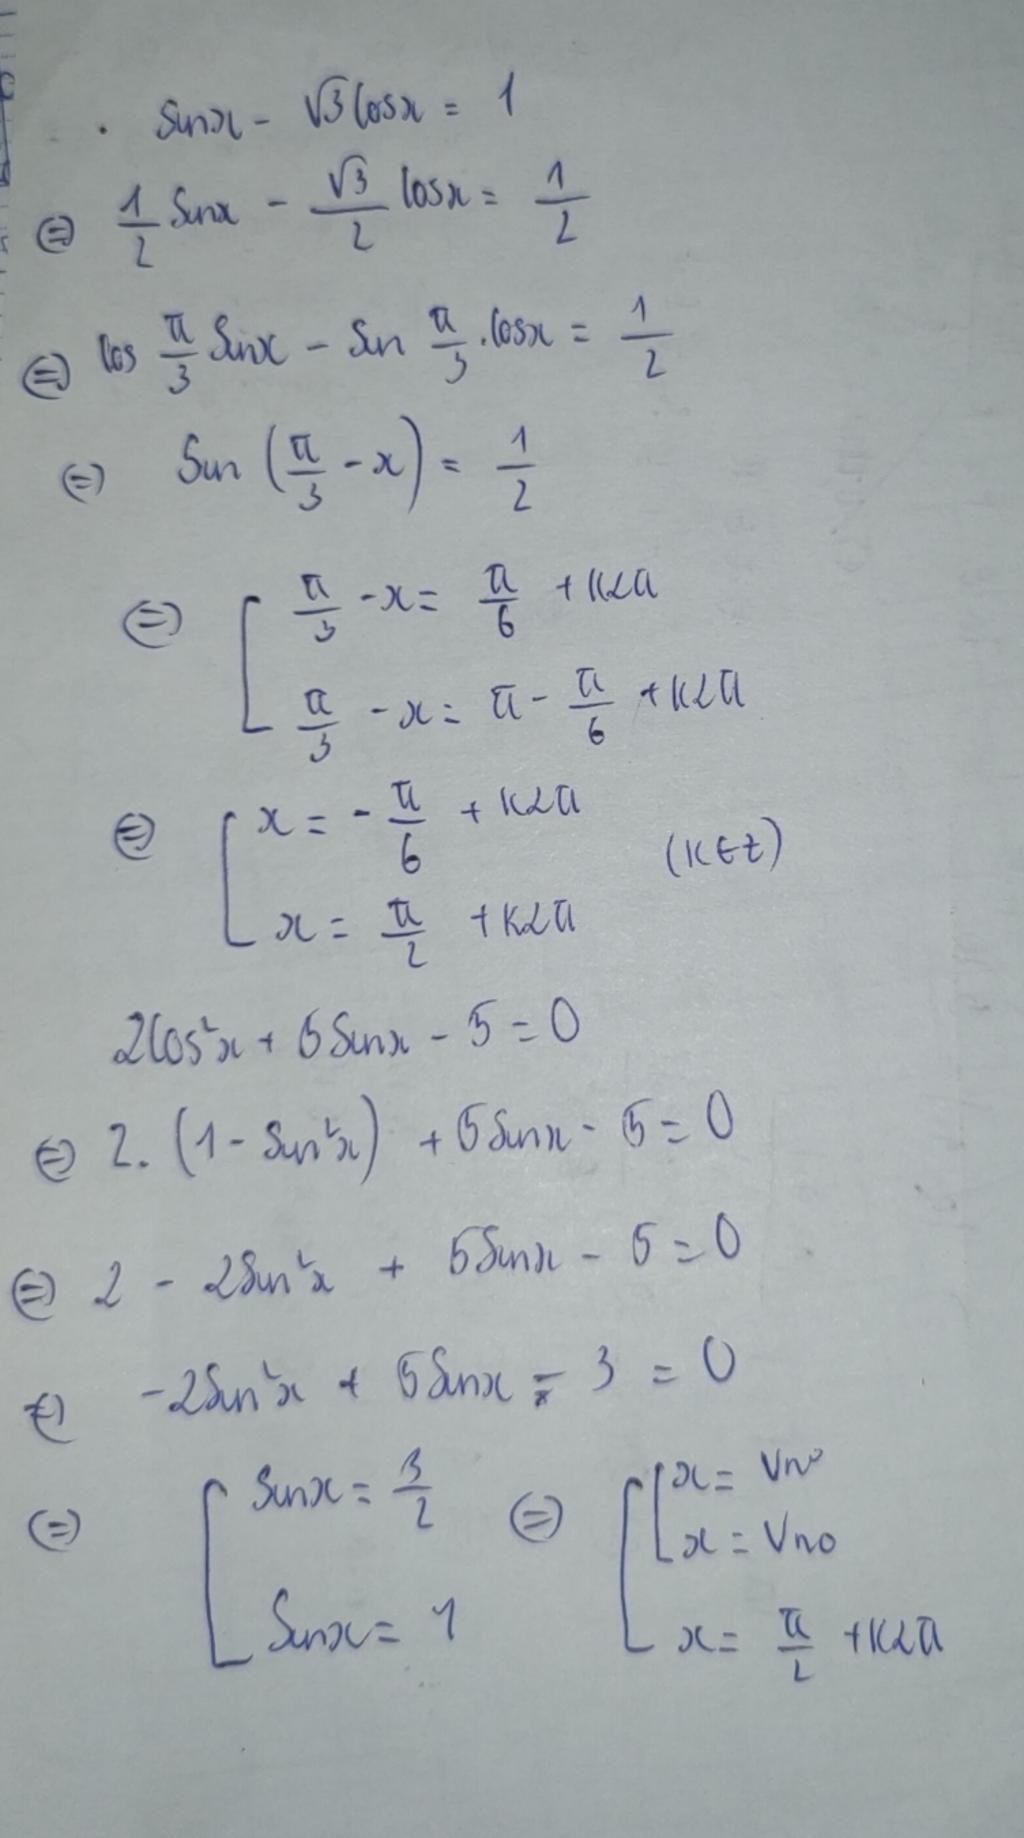 sinx - √3 cosx = 1
⇔ 1/2 sinx - √3/2 cosx = 1/2
⇔ cos π/3 sinx - sin π/3 . cosx = 1/2
⇔ sin (π/3 - x) = 1/2
⇔ [ π/3 - x = π/6 + k2π
π/3 - x = π - π/6 + k2π
⇔ [ x = - π/6 + k2π (k∈Z)
x = π/2 + k2π
2cos²x + 5sinx - 5 = 0
⇔ 2. (1 - sin²x) + 5sinx - 5 = 0
⇔ 2 - 2sin²x + 5sinx - 5 = 0
⇔ -2sin²x + 5sinx - 3 = 0
⇔ [ sinx = 3/2 ⇔ [ [ x = Vno
x = Vno
sinx = 1 x = π/2 + k2π